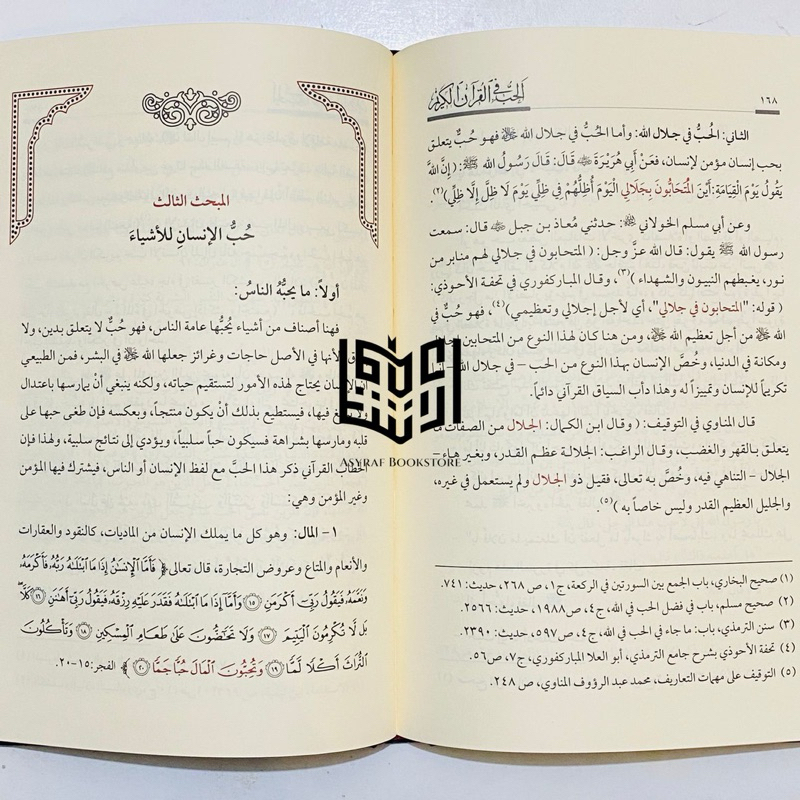 ١٦٨
الحب في القرآن الكريم
الثاني: الحُبُّ في جلال الله: وأما الحُبُّ في جلال الله ﷻ فهو حُبٌّ يتعلق
بحب إنسان مؤمن لإنسان، فعَنْ أَبِي هُرَيْرَةَ ﷺ قَالَ: قَالَ رَسُولُ اللهِ ﷺ: (إِنَّ اللَّهَ
يَقُولُ يَوْمَ الْقِيَامَةِ: أَيْنَ الْمُتَحَابُّونَ بِجَلَالِي الْيَوْمَ أُظِلُّهُمْ فِي ظِلِّي يَوْمَ لَا ظِلَّ إِلَّا ظِلِّي)(٢).
وعن أبي مسلم الخولاني: حدثني مُعاذ بن جبل قال: سمعت
رسول الله ﷺ يقول: قال الله عزَّ وجل: (المتحابون في جلالي لهم منابر من
نور، يغبطهم النبيون والشهداء)(٣)، وقال المباركفوري في تحفة الأحوذي:
(قوله: "المتحابون في جلالي"، أي لأجل إجلالي وتعظيمي)(٤)، فهو حُبٌّ في
الله ﷻ من أجل تعظيم الله ﷻ، ومن هنا كان لهذا النوع من المتحابين إجلال
ومكانة في الدنيا، وخُصَّ الإنسان بهذا النوع من الحب – في جلال الله – إنما
تكريماً للإنسان وتمييزاً له وهذا دأب السياق القرآني دائماً.
قال المناوي في التوقيف: (وقال ابن الكمال: الجلال من الصفات ما
يتعلق بالقهر والغضب، وقال الراغب: الجلالة عظم القدر، وبغير هاء –
الجلال – التناهي فيه، وخُصَّ به تعالى، فقيل ذو الجلال ولم يستعمل في غيره،
والجليل العظيم القدر وليس خاصاً به)(٥).
(١) صحيح البخاري، باب الجمع بين السورتين في الركعة، ج١، ص٢٦٨، حديث: ٧٤١.
(٢) صحيح مسلم، باب في فضل الحب في الله، ج٤، ص١٩٨٨، حديث: ٢٥٦٦.
(٣) سنن الترمذي، باب: ما جاء في الحب في الله، ج٤، ص٥٩٧، حديث: ٢٣٩٠.
(٤) تحفة الأحوذي بشرح جامع الترمذي، أبو العلا المباركفوري، ج٧، ص٥٦.
(٥) التوقيف على مهمات التعاريف، محمد عبد الرؤوف المناوي، ص ٢٤٨.
المبحث الثالث
حُبُّ الإنسانِ للأشياءَ
أولاً: ما يحبُّه الناسُ:
فهنا أصناف من أشياء يُحبُّها عامة الناس، فهو حُبٌّ لا يتعلق بدين، ولا
لأنها في الأصل حاجات وغرائز جعلها الله ﷻ في البشر، فمن الطبيعي
أن الإنسان يحتاج لهذه الأمور لتستقيم حياته، ولكنه ينبغي أنْ يمارسها باعتدال
ولا فيها، فيستطيع بذلك أنْ يكون منتجاً، وبعكسه فإن طغى حبها على
قلبه ومارسها بشراهة فسيكون حباً سلبياً، ويؤدي إلى نتائج سلبية، ولهذا فإن
الخطاب القرآني ذكر هذا الحبَّ مع لفظ الإنسان أو الناس، فيشترك فيها المؤمن
وغير المؤمن وهي:
١- المال: وهو كل ما يملك الإنسان من الماديات، كالنقود والعقارات
والأنعام والمتاع وعروض التجارة، قال تعالى ﴿فَأَمَّا الْإِنسَانُ إِذَا مَا ابْتَلَاهُ رَبُّهُ فَأَكْرَمَهُ
وَنَعَّمَهُ فَيَقُولُ رَبِّي أَكْرَمَنِ ١٥ وَأَمَّا إِذَا مَا ابْتَلَاهُ فَقَدَرَ عَلَيْهِ رِزْقَهُ فَيَقُولُ رَبِّي أَهَانَنِ ١٦ كَلَّا
بَل لَّا تُكْرِمُونَ الْيَتِيمَ ١٧ وَلَا تَحَاضُّونَ عَلَىٰ طَعَامِ الْمِسْكِينِ ١٨ وَتَأْكُلُونَ
التُّرَاثَ أَكْلًا لَّمًّا ١٩ وَتُحِبُّونَ الْمَالَ حُبًّا جَمًّا ٢٠﴾ الفجر: ١٥-٢٠.
ASYRAF BOOKSTORE